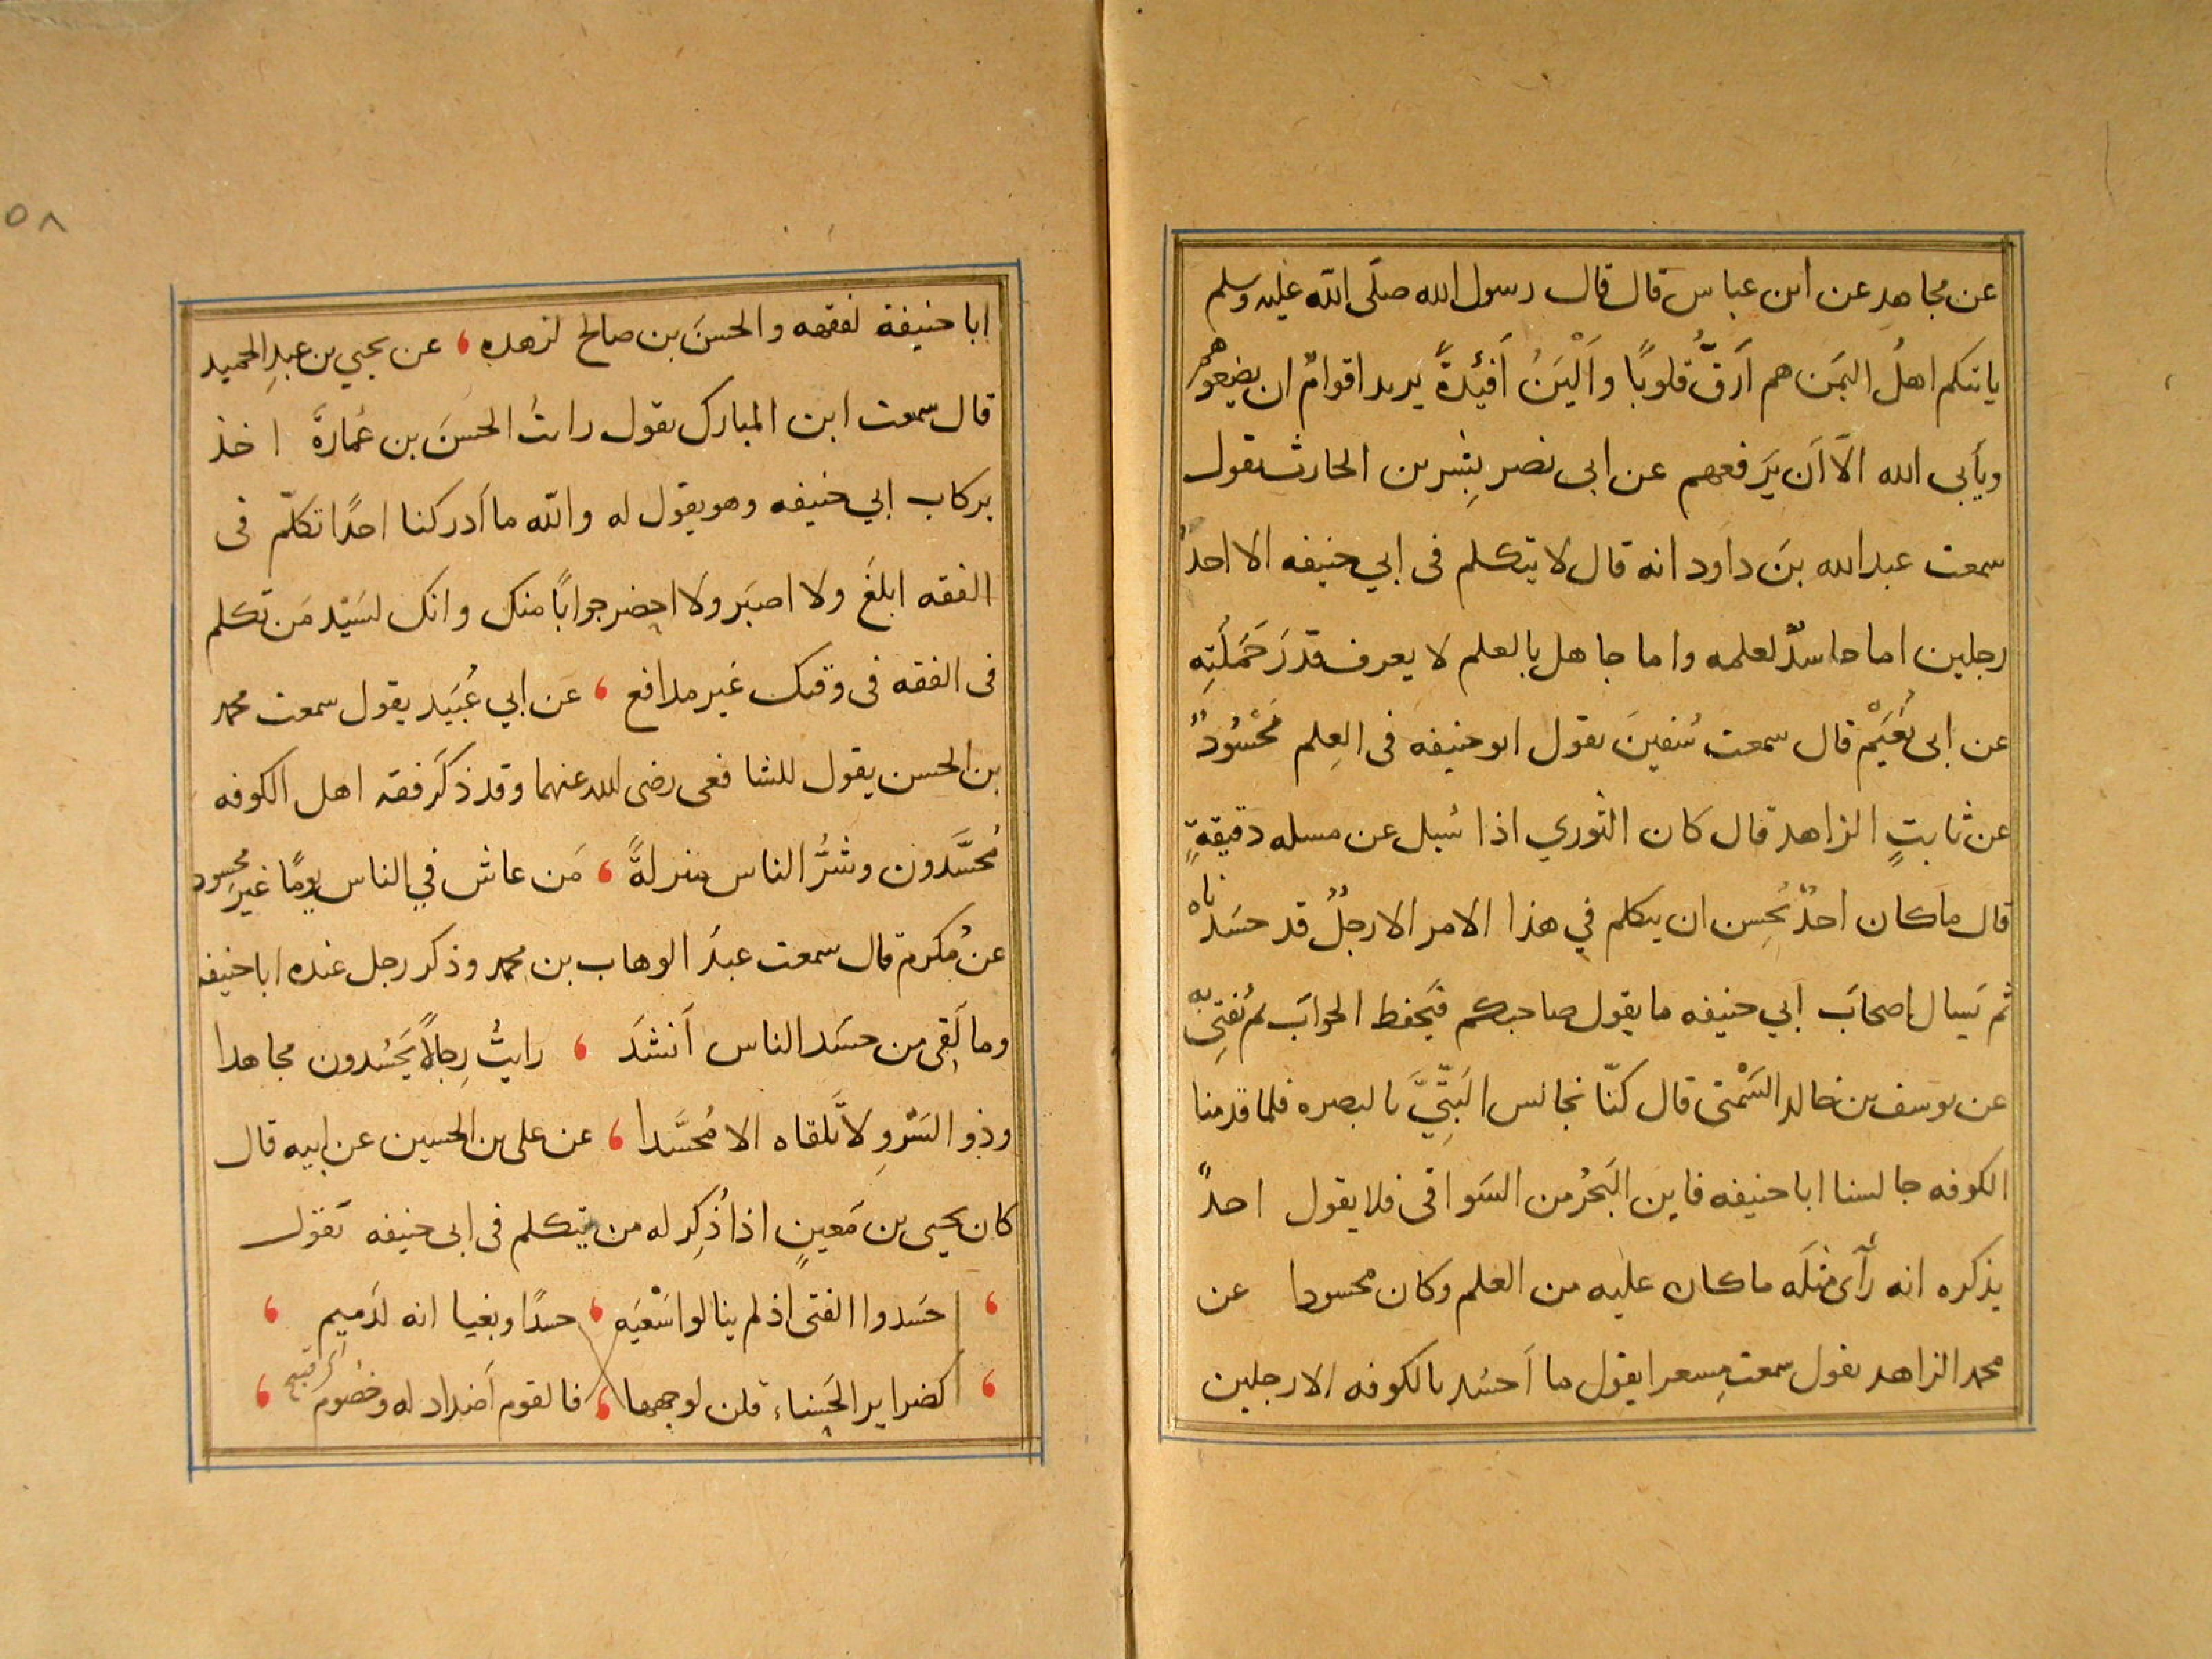 عن مجاهد عن ابن عباس قال قال رسول الله صلّى الله عليه وسلم
ياتيكم اهلُ اليمَن هم اَرَقُّ قلوبًا واَلْيَنُ اَفئِدةً يريد اقوامٌ ان يضعوهم
ويأبى الله الّا اَن يَرفعهم عن ابى نصر بِشِر بن الحارث يقول
سمعت عبدالله بنَ داود انه قال لا يتكلم فى ابي حنيفه الا احدُ
رجلين اما حاسدٌ لعلمه واما جاهل بالعلم لا يعرف قدرَ حَمَلَتِه
عن ابى نُعَيْم قال سمعت سُفينَ يقول ابو حنيفه فى العِلم مَحْسُودٌ
عن ثابتٍ الزاهد قال كان الثوري اذا سُيل عن مسله دقيقةٍ
قال ما كان احدٌ يُحِسن ان يتكلم في هذا الامر الا رجلٌ قد حسَدناهْ
ثم يَسال اصحابَ ابي حنيفه ما يقول صاحبكم فيَحفظ الجوابَ ثم يُفتِى به
عن يوسف بن خالد السَمْتى قال كنّا نجالس البَتِّيَّ بالبصره فلما قدمنا
الكوفه جالسنا ابا حنيفه فاين البَحرُ من السَواقى فلا يقول احدً
يذكره انه رَآى مثلَه ما كان عليه من العلم وكان محسودا عن
محمد الزاهد يقول سمعت مِسعرا يقول ما اَحسُد بالكوفه الا رجلين
ابا حنيفة لفقهه والحسنَ بن صالح لزهده ، عن يحيي بن عبدِ الحميد
قال سمعت ابن المبارك يقول رايتُ الحسنَ بن عُمارةَ اخذ
بركاب ابي حنيفه وهو يقول له والله ما اَدركنا احدًا تكلّم فى
الفقه ابلغَ ولا اصبَر ولا احضر جوابًا منك وانك لسَيّد مَن تكلم
فى الفقه فى وقتك غير مدافع ، عَن ابي عُبَيد يقول سمعت محمد
بن الحسن يقول للشافعى رضى الله عنهما وقد ذكَر فقه اهل الكوفه
مُحسَّدون وشرُّ الناس منزلةً ، مَن عاش في الناس يومًا غيرَ محسود
عن مُكرم قال سمعت عبدَ الوهاب بن محمد وذكر رجل عنده ابا حنيفه
وما لَقِى من حسَد الناس اَنشدَ ، رايتُ رِجالًا يَحسُدون مجاهدا
وذو السَرْوِ لا تَلقاه الا مُحسَّدا ، عن على بن الحسين عن ابيه قال
كان يحيى بن مَعينٍ اذا ذُكِر له من يتكلم فى ابى حنيفه يَقول
، حسَدوا الفتى اذ لم ينالوا سَعْيَه ، حسدًا وبغيا انه لدَميم ،
، كضراير الحَسناء قلن لوجهها ، فالقوم اَضداد له وخصُوم ،
اى قبيح
٥٨